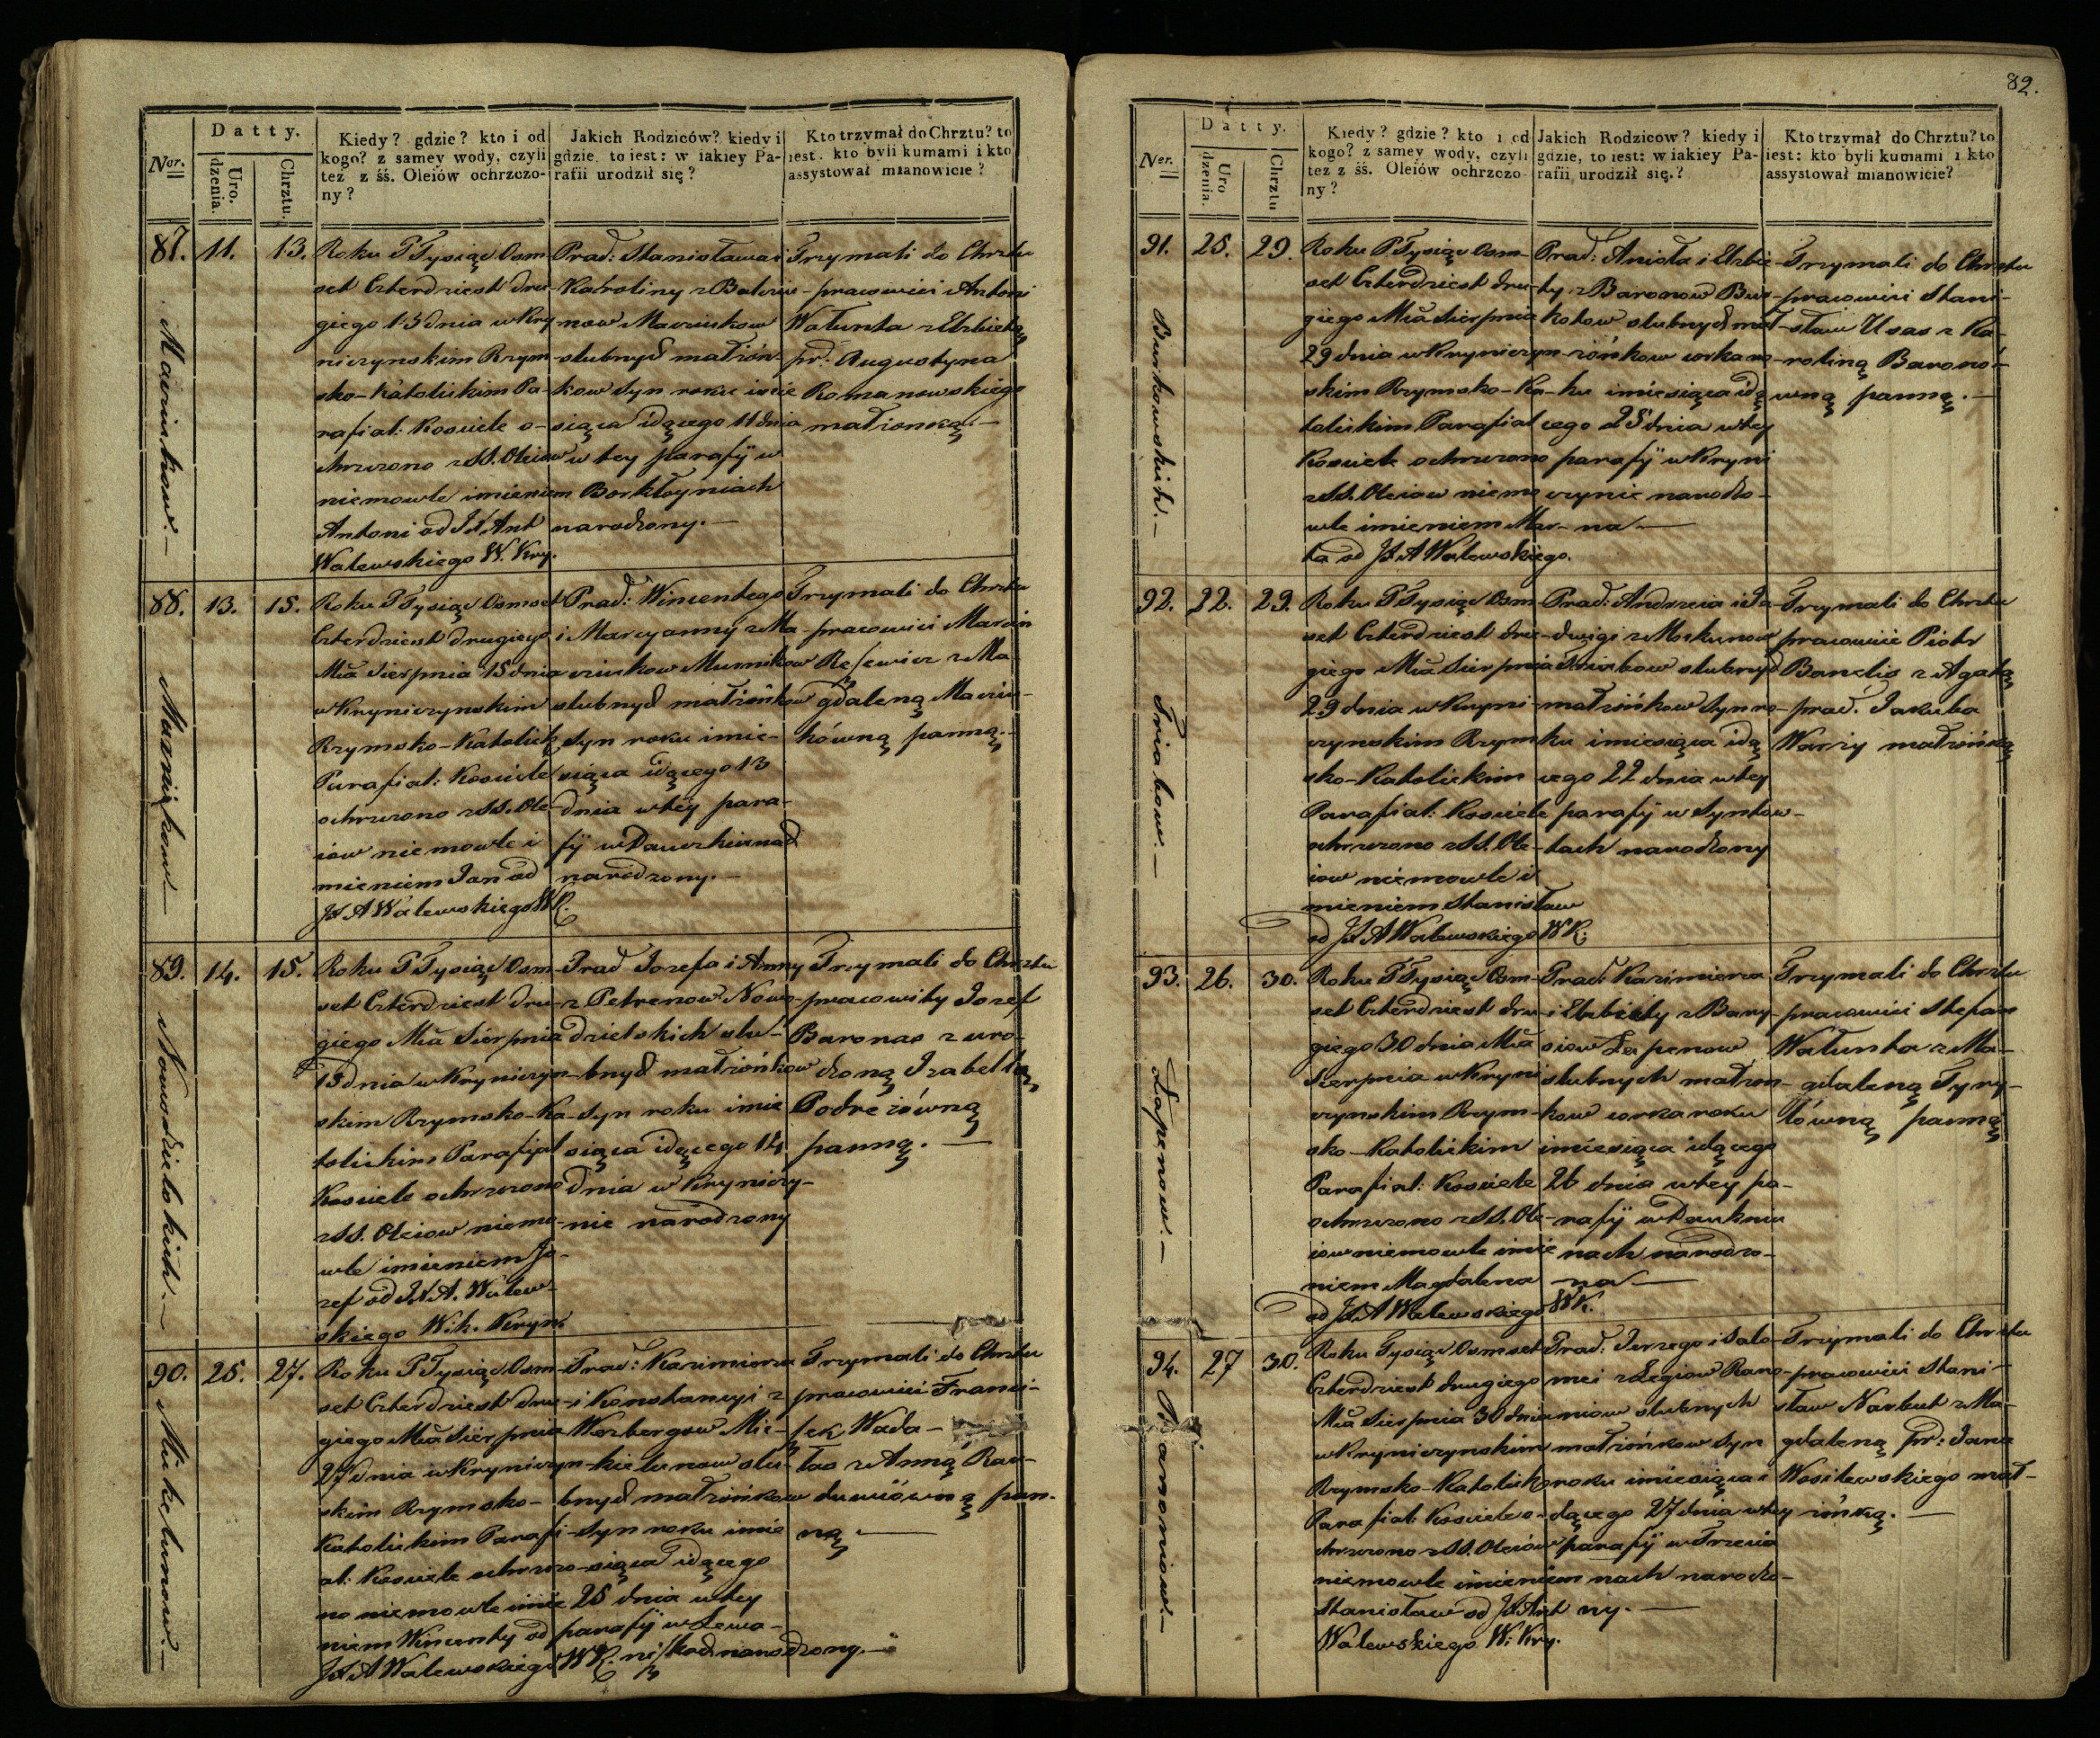 Nor.
Datty.
Uro-
dzenia.
Chrztu.
Kiedy? gdzie? kto i od
kogo? z samey wody, czyli
też z śś. Oleiów ochrzczo-
ny?
Jakich Rodziców? kiedy i
gdzie, to iest: w iakiey Pa-
rafii urodził się?
Kto trzymał do Chrztu? to
iest: kto byli kumami i kto
assystował mianowicie?
87. 11. 13.
Roku P Tysiąc Osm-
set Czterdziest dru-
giego 13 dnia w Kry
niczynskim Rzym-
sko-Katolickim Pa-
rafial: Kosciele o-
chrzczono z SS. Oleiow
niemowle imieniem
Antoni od JX Ant
Walewskiego W. Kry.
Prad: Stanisława i
Karoliny z Balciu-
now Maciukow
slubnych małżon-
kow syn roku i mie
siąca idącego 11 dnia
w tey parafij w
Borkłoyniach
narodzony.-
Trzymali do Chrztu
pracowici Antoni
Watunta z Elzbietą
pr. Augustyna
Romanowskiego
małżonką.-
88. 13. 15.
Roku P Tysiąc Osmset
Czterdziest drugiego
Mca Sierpnia 15 dnia
w Kryniczynskim
Rzymsko-Katolick
Parafial: Kosciele
ochrzczono z SS. Ole-
iow niemowle i
mieniem Jan od
JX A Walewskiego WK.
Prad: Wincentego
i Maryanny z Ma-
ciukow
slubnych małżonkow
syn roku i mie-
siąca idącego 13
dnia w tey para-
fij w
narodzony.-
Trzymali do Chrztu
pracowici Marcin
z Ma-
gdaleną Maciu-
kówną panną.-
89. 14. 15.
Nowodzielskich.-
Roku P Tysiąc Osm-
set Czterdziest dru-
giego Mca Sierpnia
15 dnia w Kryniczyn-
skim Rzymsko-Ka-
tolickim Parafijal
Kosciele ochrzczono
z SS. Oleiow niemo-
wle imieniem Jo-
zef od JX A. Walew-
skiego W.k. Kryn.
Prad Jozefa i Anny
z Petrenow Nowo-
dzielskich slu-
bnych małżonkow
syn roku i mie
siąca idącego 14
dnia w Kryniczy-
nie narodzony
Trzymali do Chrztu
pracowity Jozef
Baronas z uro-
dzoną Izabellą
Podreżówną
panną.-
90. 25. 27.
Mikelunow.-
Roku P Tysiąc Osm-
set Czterdziest dru-
giego Mca Sierpnia
27 dnia w Kryniczyn-
skim Rzymsko-
Katolickim Parafi-
al: Kosciele ochrzczo-
no niemowle imie
niem Wincenty od
JX A Walewskiego WK.
Prad: Kazimierza
i Konstancyi z
Worbergow Mi-
kelunow slu-
bnych małżonkow
syn roku i mie
siąca idącego
25 dnia w tey
parafij w Lewa-
niszkach narodzony.-
Trzymali do Chrztu
pracowici Franci-
szek Wada-
łas z Anną Ra-
pan.
ną
82.
Ner.
Datty.
Uro
dzenia.
Chrztu
Kiedy? gdzie? kto i od
kogo? z samey wody, czyli
też z śś. Oleiów ochrzczo-
ny?
Jakich Rodziców? kiedy i
gdzie, to iest: w iakiey Pa-
rafii urodził się.?
Kto trzymał do Chrztu? to
iest: kto byli kumami i kto
assystował mianowicie?
91. 25. 29.
Burkowskich.-
Roku P Tysiąc Osm-
set Czterdziest dru-
giego Mca Sierpnia
29 dnia w Kryniczyn-
skim Rzymsko-Ka-
tolickim Parafial
Kosciele ochrzczono
z SS. Oleiow niemo
wle imieniem Mar-
ta od JX A Walewskiego.
Prad: Anioła i Elzbie
ty z Baronow Bur-
kow slubnych mał-
żonkow corka ro
ku i miesiąca idą
cego 25 dnia w tey
parafij w Kryni
czynie narodzo-
na
Trzymali do Chrztu
pracowici Stani-
sław Usas z Ka-
roliną Baronó-
wną panną.-
92. 22. 29.
Roku P Tysiąc Osm-
set Czterdziest dru-
giego Mca Sierpnia
29 dnia w Kryni-
czynskim Rzym
sko-Katolickim
Parafial: Kosciele
ochrzczono z SS. Ole-
iow niemowle i
mieniem Stanisław
od JX A Walewskiego WK.
Prad: Andrzeia i Ja
dwigi z Moskunow
slubnych
małżonkow syn ro-
ku i miesiąca idą
cego 22 dnia w tey
parafij w Syntow-
tach narodzony
Trzymali do Chrztu
pracowici Piotr
Banelis z Agatą
prad. Jakuba
małżonką
93. 26. 30.
Łapenow.-
Roku P Tysiąc Osm-
set Czterdziest dru-
giego 30 dnia Mca
Sierpnia w Kryni
czynskim Rzym-
sko-Katolickim
Parafial: Kosciele
ochrzczono z SS. Ole-
iow niemowle imie
niem Magdalena
od JX A Walewskiego WK.
Prad: Kazimierza
i Elzbiety z Bary-
siow Łapenow
slubnych małżon-
kow corka roku
i miesiąca idącego
26 dnia w tey pa-
rafij w Daukniu
nach narodzo-
na
Trzymali do Chrztu
pracowici Stefan
Watunta z Ma-
gdaleną Tyry-
łówną panną
94. 27 30.
Ranoniow.-
Roku Tysiąc Osmset
Czterdziest drugiego
Mca Sierpnia 30 dnia
w Kryniczynskim
Rzymsko-Katolick
Parafial: Kosciele o-
chrzczono z SS. Oleiów
niemowle imieniem
Stanisław od JX Ant
Walewskiego W: Kry.
Prad: Jerzego i Salo-
mei z Legiow Rano-
niow slubnych
małżonkow syn
roku i miesiąca i
dącego 27 dnia w tey
parafij w Trzecia
nach narodzo-
ny.-
Trzymali do Chrztu
pracowici Stani-
sław Narbut z Ma-
gdaleną Pr: Jana
Wasilewskiego mał-
żonką.-